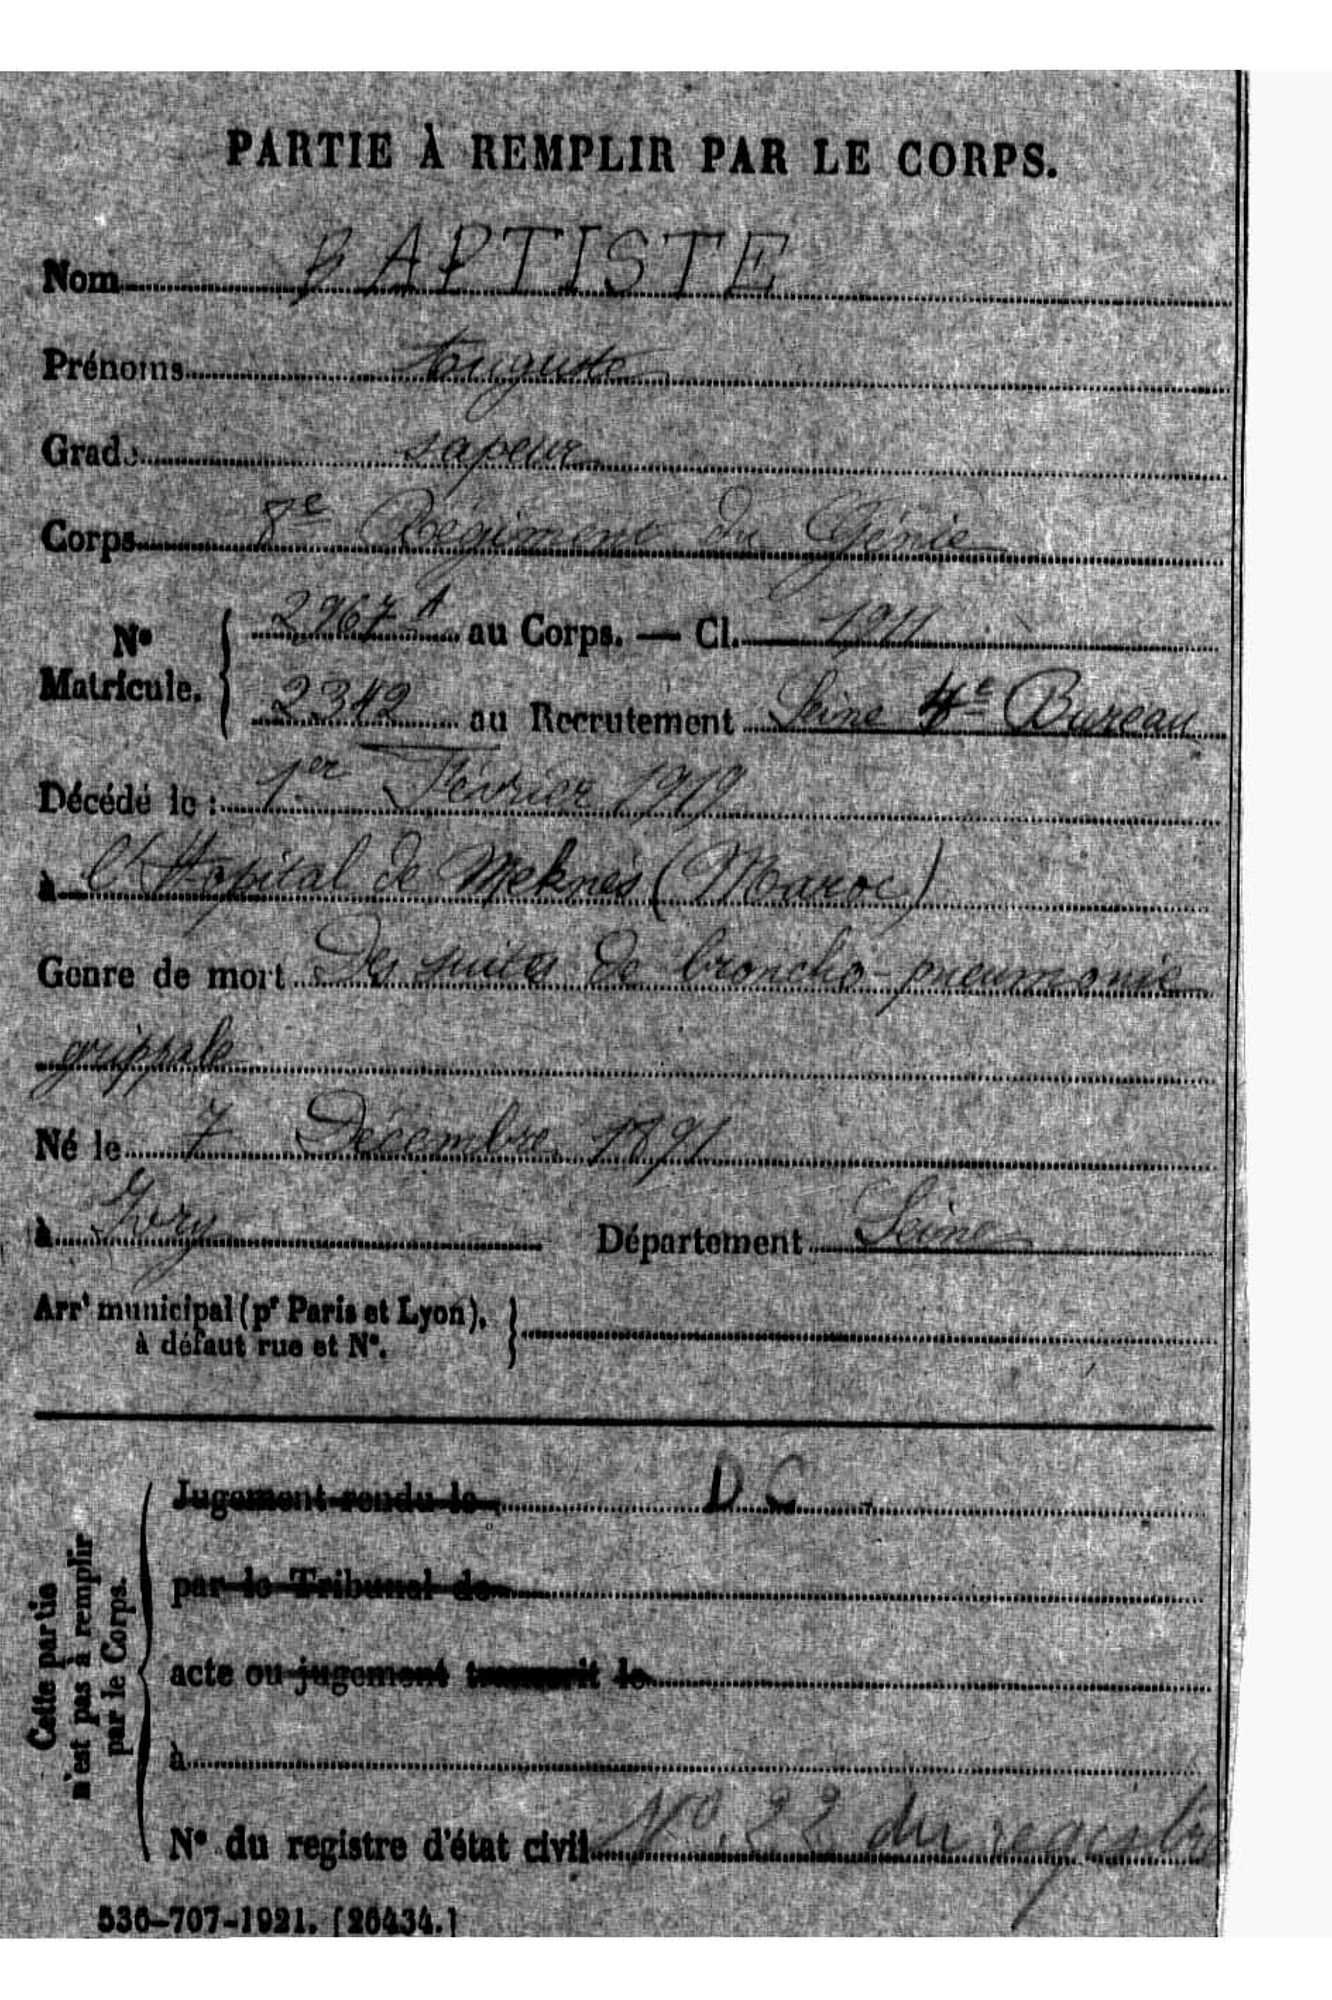 PARTIE À REMPLIR PAR LE CORPS.
Nom BAPTISTE
Prénoms Auguste
Grade sapeur
Corps 8e Régiment du Génie
No Matricule. { 2967 A au Corps. — Cl. 1911
2342 au Recrutement Seine 4e Bureau
Décédé le : 1er Février 1919
à l'Hopital de Meknès (Maroc)
Genre de mort Des suites de broncho-pneumonie
grippale
Né le 7 Décembre 1891
à Ivry Département Seine
Arrt municipal (pr Paris et Lyon), }
à défaut rue et No.
Cette partie
n'est pas à remplir
par le Corps.
Jugement rendu le D C
par le Tribunal de
acte ou jugement transcrit le
à
No du registre d'état civil No. 22 du registre
536-707-1921. [26434.]